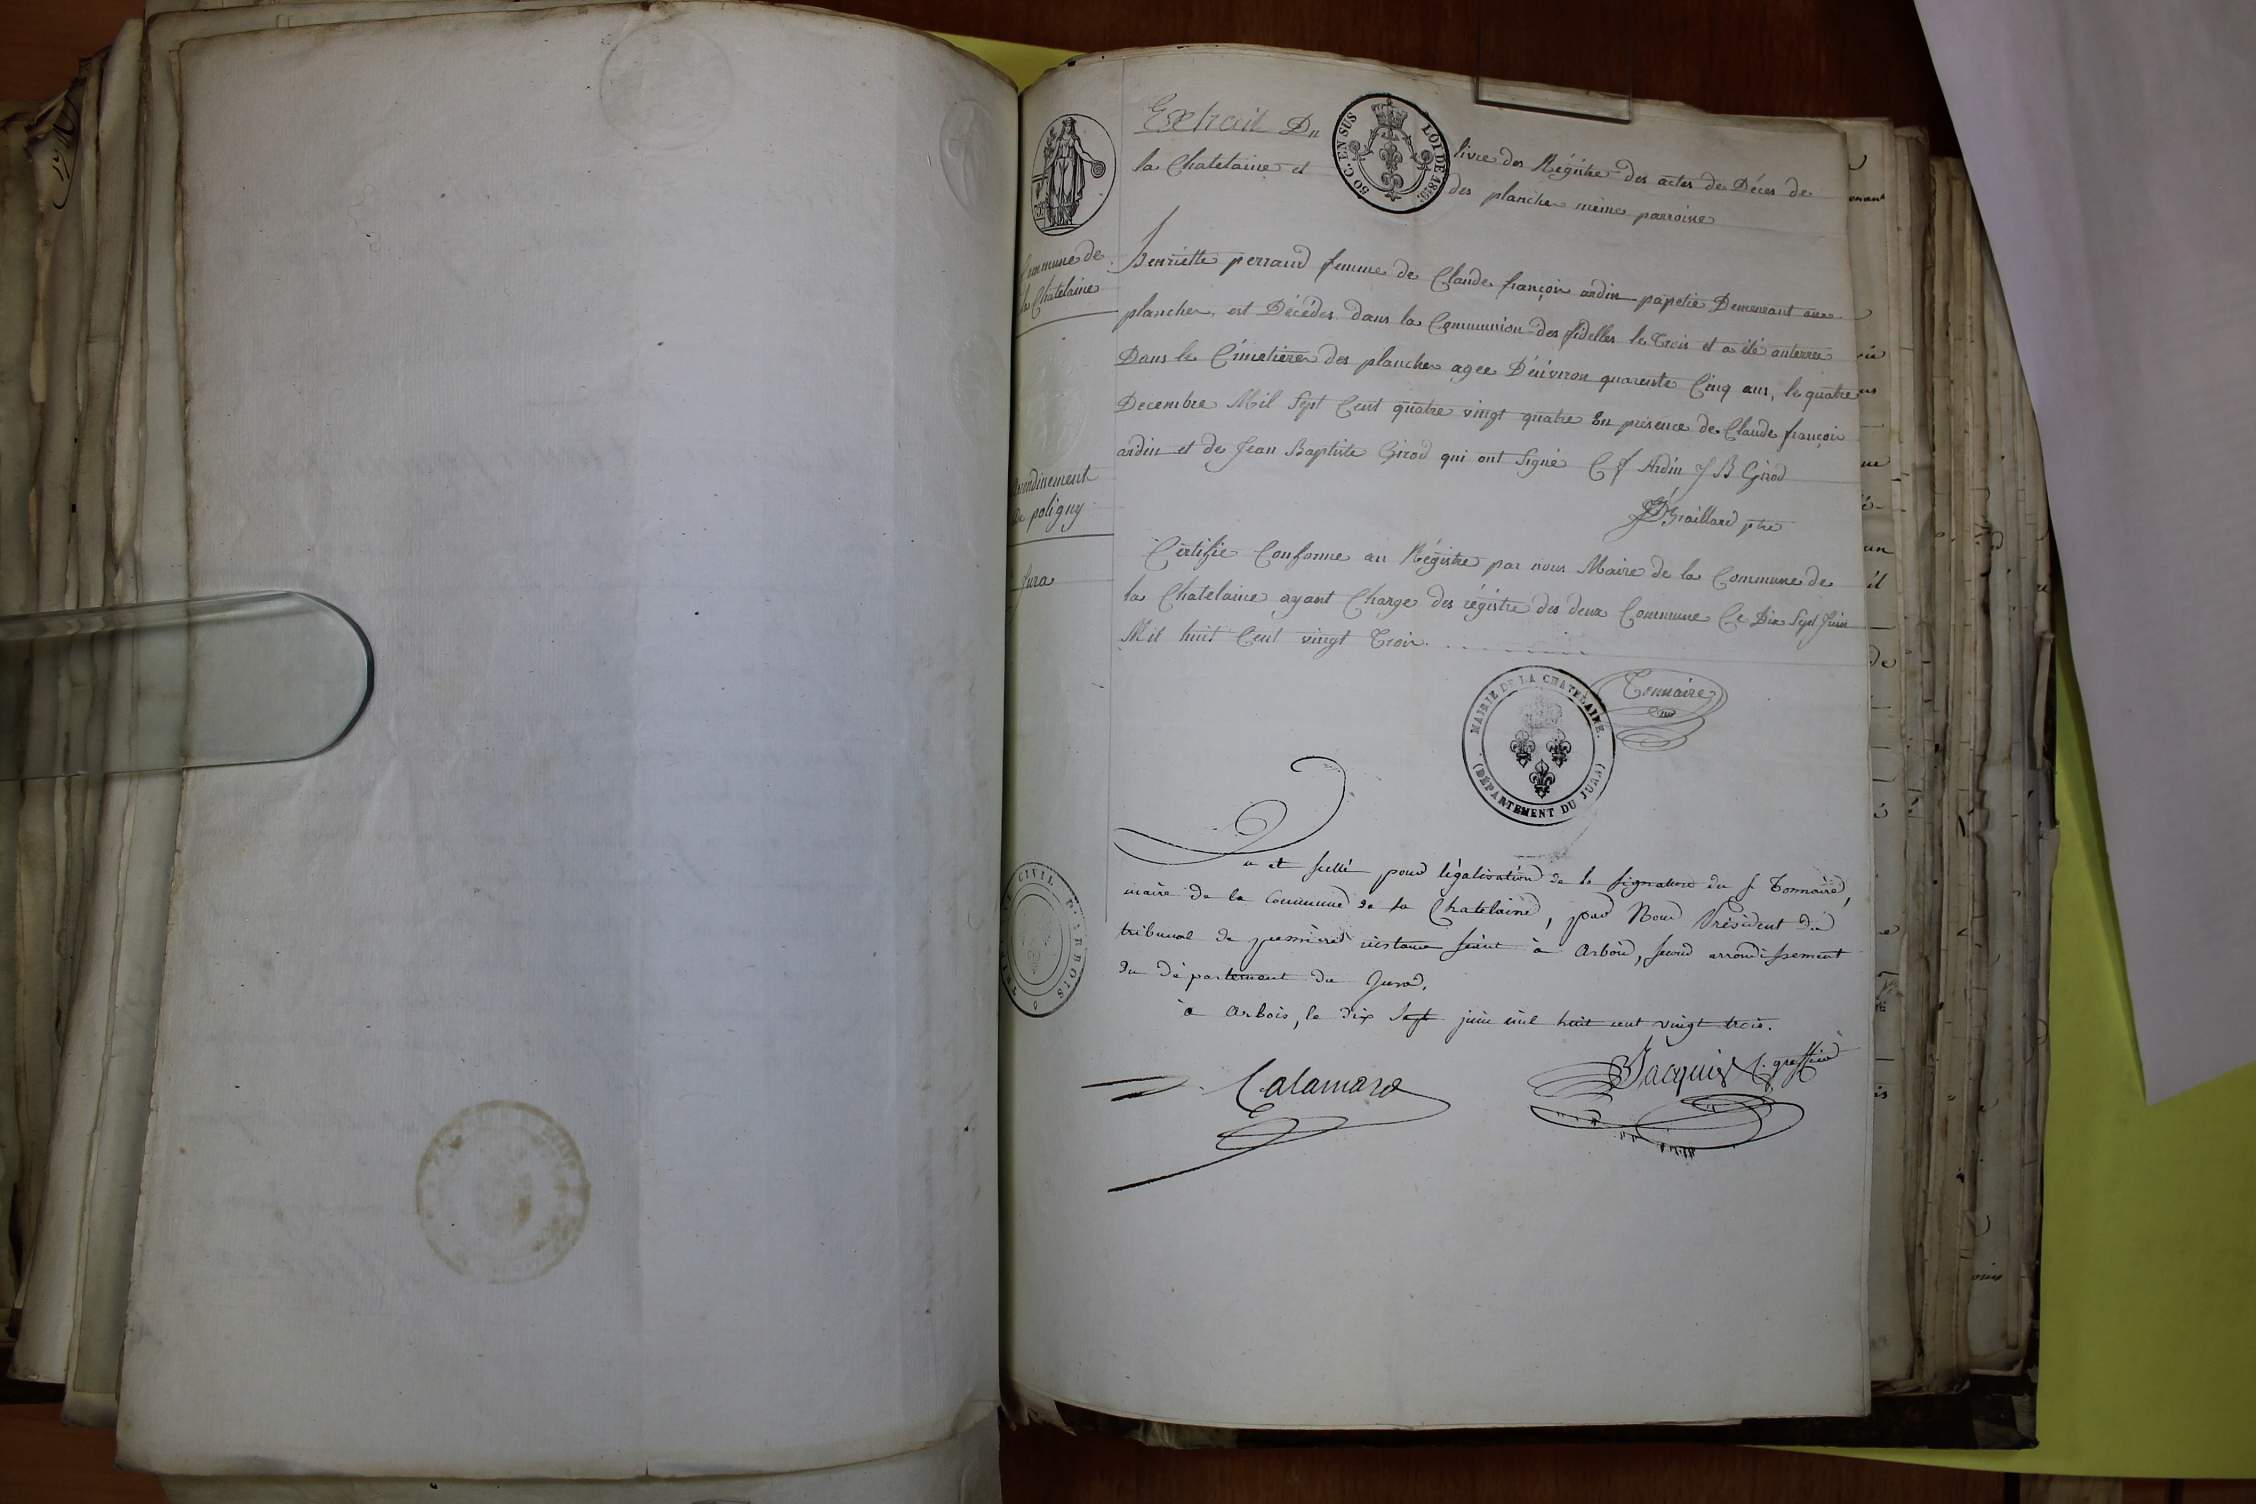 Extrait Du livre des Régistre des actes de Déces de
la Chatelaine et des planche même parroisse
50 C. EN SUS
LOI DE 1816.
Commune de
la Chatelaine
henriette perraud femme de Claude françois ardin papetié Demeurant aux
planches, est Décédée dans la Communion des fidelles le trois et a été anterrée
Dans le Cimetière des planches agee D'énviron quarente Cinq ans, le quatre
Decembre Mil Sept Cent quatre vingt quatre En présence de Claude françois
ardin et de Jean Baptiste Girod qui ont Signé C f Ardin J B Girod
Arrondinement
De poligny
Jura
Braillard ptre
Certifié Conforme au Régistre par nous Maire de la Commune de
la Chatelaine ayant Charge des régistre des deux Commune Ce Dix Sept Juin
Mil huit Cent vingt Trois
Tonnaire
MAIRIE DE LA CHATELAINE.
(DÉPARTEMENT DU JURA)
Vu et scellé pour légalisation de la signature du s Tonnaire,
maire de la Commune de la Chatelaine, par Nous Président du
tribunal de première instance séant à Arbois, second arrondissement
du département du Jura.
à Arbois, le dix Sept juin mil huit cent vingt trois.
CIVIL D'ARBOIS
Calamard
Jacquin C. greffier